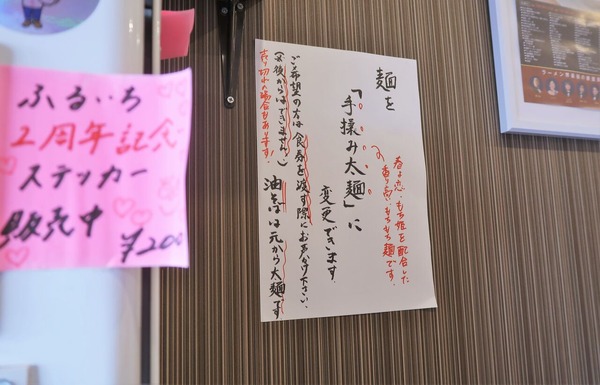 ふるいち
2周年記念
ステッカー
販売中
¥200
麺を
「手揉み太麺」に
変更できます
春よ恋・もち姫を配合した
香り高いもちもち麺です。
ご希望の方は食券を渡す際にお声かけ下さい。
(後からはできません。)
売り切れの場合もあります!
油そばは元から太麺です